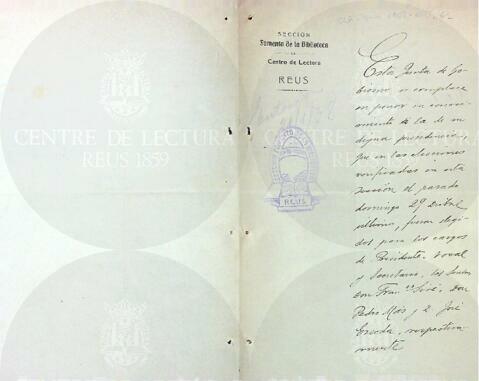 SECCIÓN
Fomento de la Biblioteca
DEL
Centro de Lectura
REUS
CENTRE DE LECTURA
REUS 1859
CENTRE DE LECTURA
REUS 1859
REUS
Esta Junta de Go-
bierno se complace
en poner en conoci-
miento de la de su
digna presidencia
que en las elecciones
verificadas en esta
Sección el pasado
domingo 29 Dicbre
último, fueron elegi-
dos para los cargos
de Presidente, vocal
y Secretario, los Señores
don Fran.co
Don
Pedro y D. José
respectiva-
mente